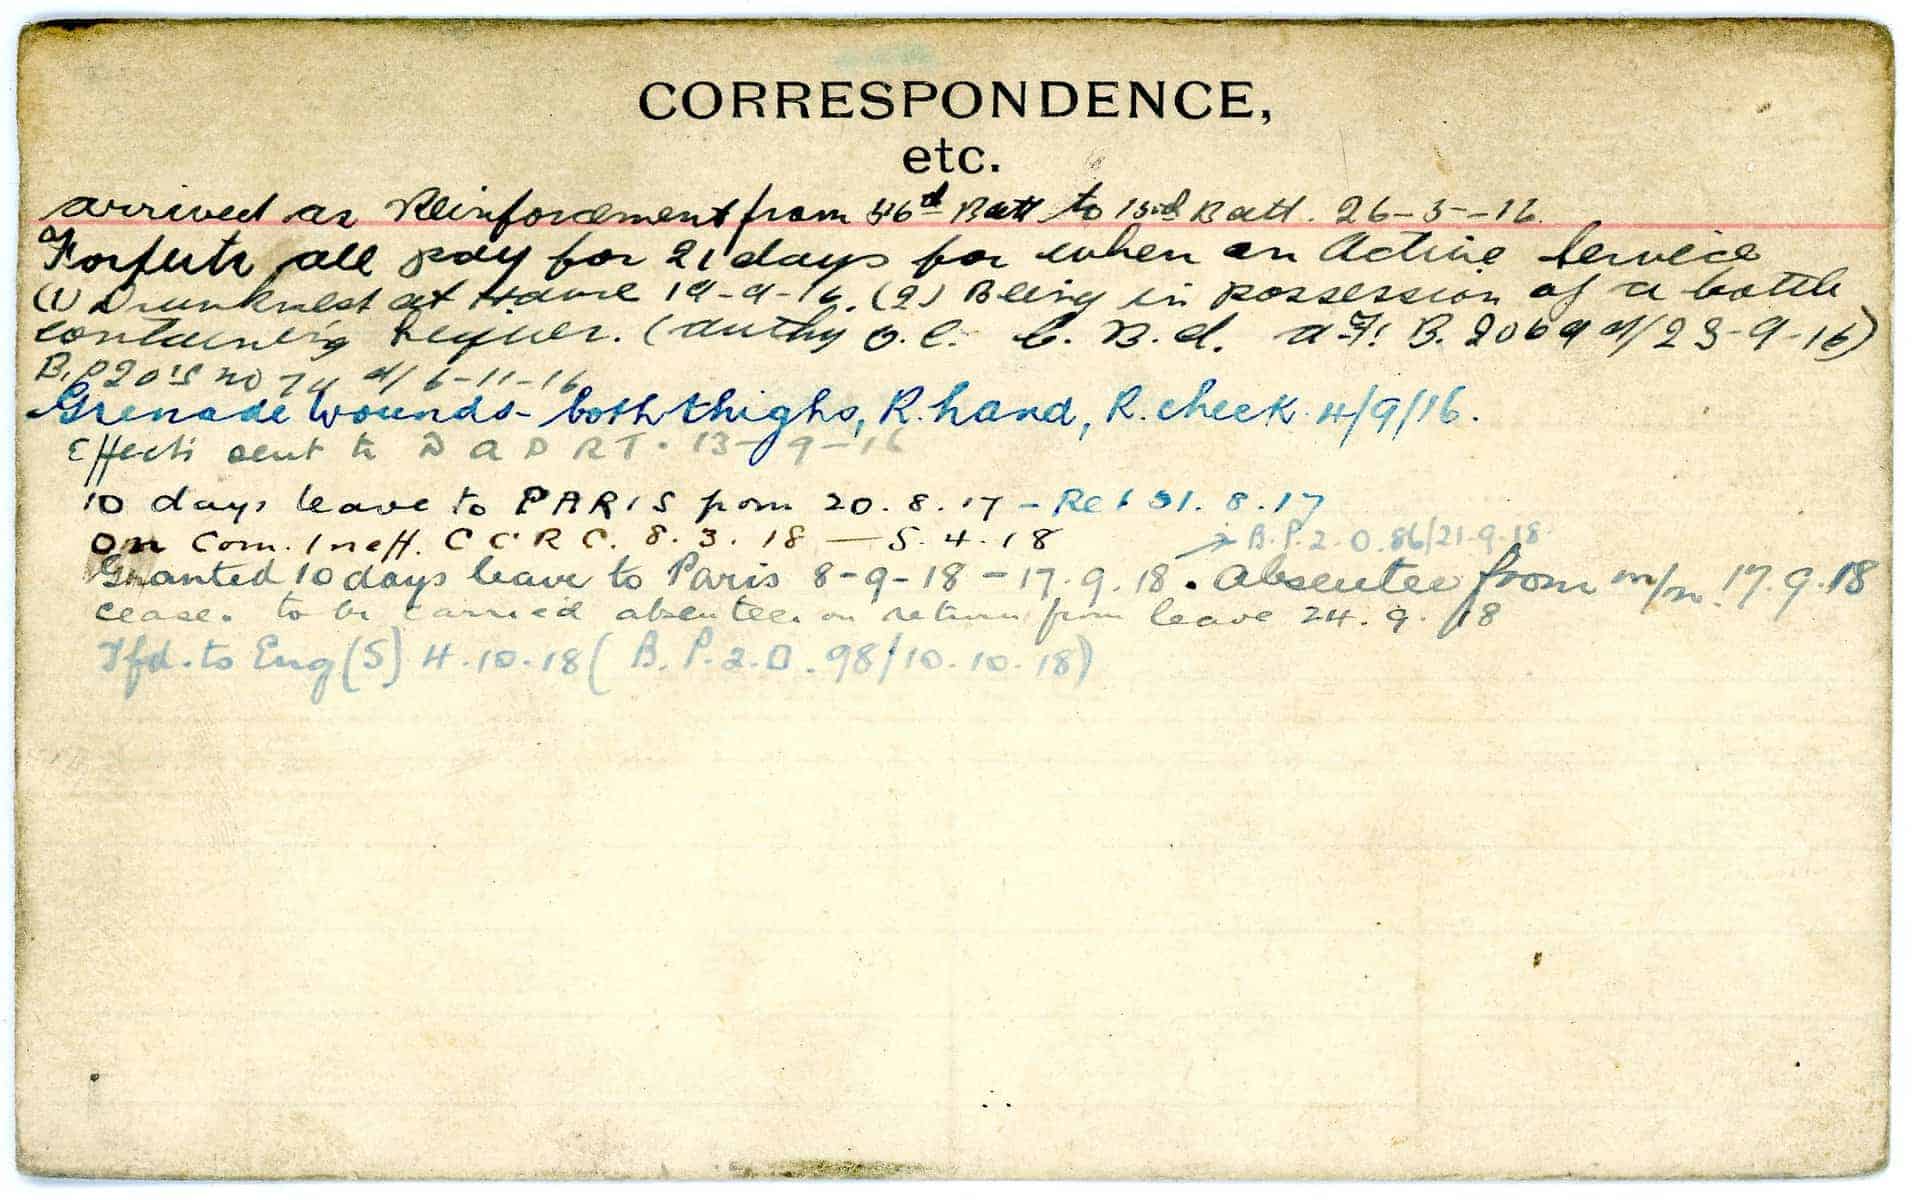 CORRESPONDENCE,
etc.
arrived as Reinforcement from Batt to Batt. 26-5-16
Forfeits all pay for 21 days for when on Active Service
(1) Drunkness at Havre 19-9-16. (2) Being in possession of a bottle
containing Liquer. (authy O.C. C. B. d. a F! B. 2069 d/ 23-9-16)
d/ 6-11-16
Grenade Wounds - both thighs, R. hand, R. cheek. 4/9/16.
Effects sent to D A D R T. 13-9-16
10 days leave to PARIS from 20.8.17 - Ret 31.8.17
On Com. Ineff. C C R C. 8.3.18 — 5.4.18
→ B.P.2.O.86/21.9.18.
Granted 10 days leave to Paris 8-9-18 - 17.9.18. Absentee from m/n. 17.9.18
cease. to be carried absentee. on return from leave 24.9.18
Tfd. to Eng (S) 4.10.18 (B.P.2.O.98/10.10.18)